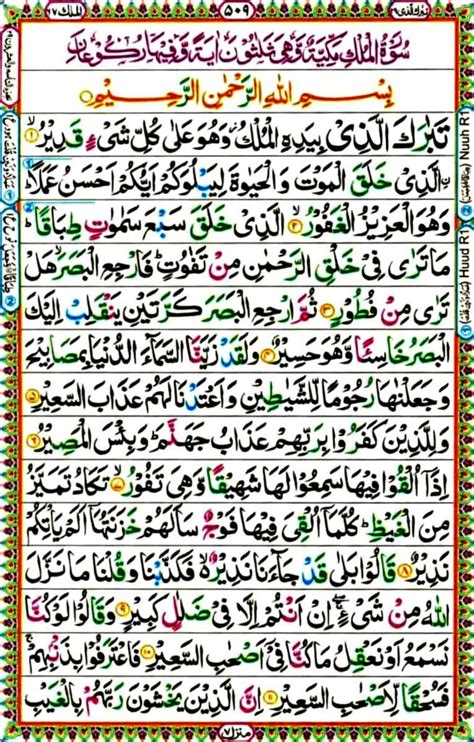 تبرك الذی ۲۹
۵۰۹
الملك ۶۷
سُوْرَةُ الْمُلْكِ مَكِّيَّةٌ وَّهِیَ ثَلٰثُوْنَ اٰيَةً وَّفِيْهَا رُكُوْعَانِ
بِسْمِ اللّٰهِ الرَّحْمٰنِ الرَّحِيْمِ
تَبٰرَكَ الَّذِیْ بِيَدِهِ الْمُلْكُ وَهُوَ عَلٰی كُلِّ شَیْءٍ قَدِيْرُ ۙ﴿۱﴾
الَّذِیْ خَلَقَ الْمَوْتَ وَالْحَيٰوةَ لِيَبْلُوَكُمْ اَيُّكُمْ اَحْسَنُ عَمَلًا ؕ
وَهُوَ الْعَزِيْزُ الْغَفُوْرُ ۙ﴿۲﴾ الَّذِیْ خَلَقَ سَبْعَ سَمٰوٰتٍ طِبَاقًا ؕ
مَا تَرٰی فِیْ خَلْقِ الرَّحْمٰنِ مِنْ تَفٰوُتٍ ؕ فَارْجِعِ الْبَصَرَ ۙ هَلْ
تَرٰی مِنْ فُطُوْرٍ ﴿۳﴾ ثُمَّ ارْجِعِ الْبَصَرَ كَرَّتَيْنِ يَنْقَلِبْ اِلَيْكَ
الْبَصَرُ خَاسِئًا وَّهُوَ حَسِيْرٌ ﴿۴﴾ وَلَقَدْ زَيَّنَّا السَّمَآءَ الدُّنْيَا بِمَصَابِيْحَ
وَجَعَلْنٰهَا رُجُوْمًا لِّلشَّيٰطِيْنِ وَاَعْتَدْنَا لَهُمْ عَذَابَ السَّعِيْرِ ﴿۵﴾
وَلِلَّذِيْنَ كَفَرُوْا بِرَبِّهِمْ عَذَابُ جَهَنَّمَ ؕ وَبِئْسَ الْمَصِيْرُ ﴿۶﴾
اِذَاۤ اُلْقُوْا فِيْهَا سَمِعُوْا لَهَا شَهِيْقًا وَّهِیَ تَفُوْرُ ۙ﴿۷﴾ تَكَادُ تَمَيَّزُ
مِنَ الْغَيْظِ ؕ كُلَّمَاۤ اُلْقِیَ فِيْهَا فَوْجٌ سَاَلَهُمْ خَزَنَتُهَاۤ اَلَمْ يَاْتِكُمْ
نَذِيْرٌ ﴿۸﴾ قَالُوْا بَلٰی قَدْ جَآءَنَا نَذِيْرٌ ۙ فَكَذَّبْنَا وَقُلْنَا مَا نَزَّلَ
اللّٰهُ مِنْ شَیْءٍ ۚۖ اِنْ اَنْتُمْ اِلَّا فِیْ ضَلٰلٍ كَبِيْرٍ ﴿۹﴾ وَقَالُوْا لَوْ كُنَّا
نَسْمَعُ اَوْ نَعْقِلُ مَا كُنَّا فِیْۤ اَصْحٰبِ السَّعِيْرِ ﴿۱۰﴾ فَاعْتَرَفُوْا بِذَنْۢبِهِمْ ۚ
فَسُحْقًا لِّاَصْحٰبِ السَّعِيْرِ ﴿۱۱﴾ اِنَّ الَّذِيْنَ يَخْشَوْنَ رَبَّهُمْ بِالْغَيْبِ
منزل ۷
Huud R1